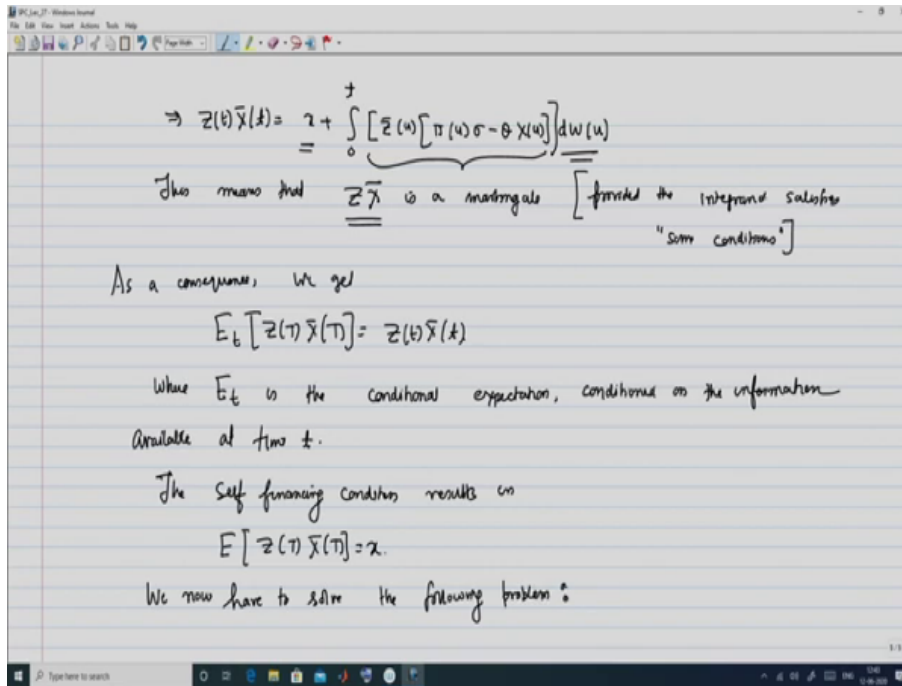 SPC_Lec_27 - Windows Journal
File Edit View Insert Actions Tools Help
Page Width
⇒ Z(t) X̄(t) = x + ∫₀ᵗ [Z(u)[π(u)σ - θ X(u)]] dW(u)
This means that Z X̄ is a martingale [provided the integrand satisfies
"some conditions"]
As a consequence, we get
E_t [Z(T) X̄(T)] = Z(t) X̄(t)
Where E_t is the conditional expectation, conditioned on the information
available at time t.
The Self financing condition results in
E[Z(T) X̄(T)] = x.
We now have to solve the following problem :
Type here to search
ENG
12-06-2020